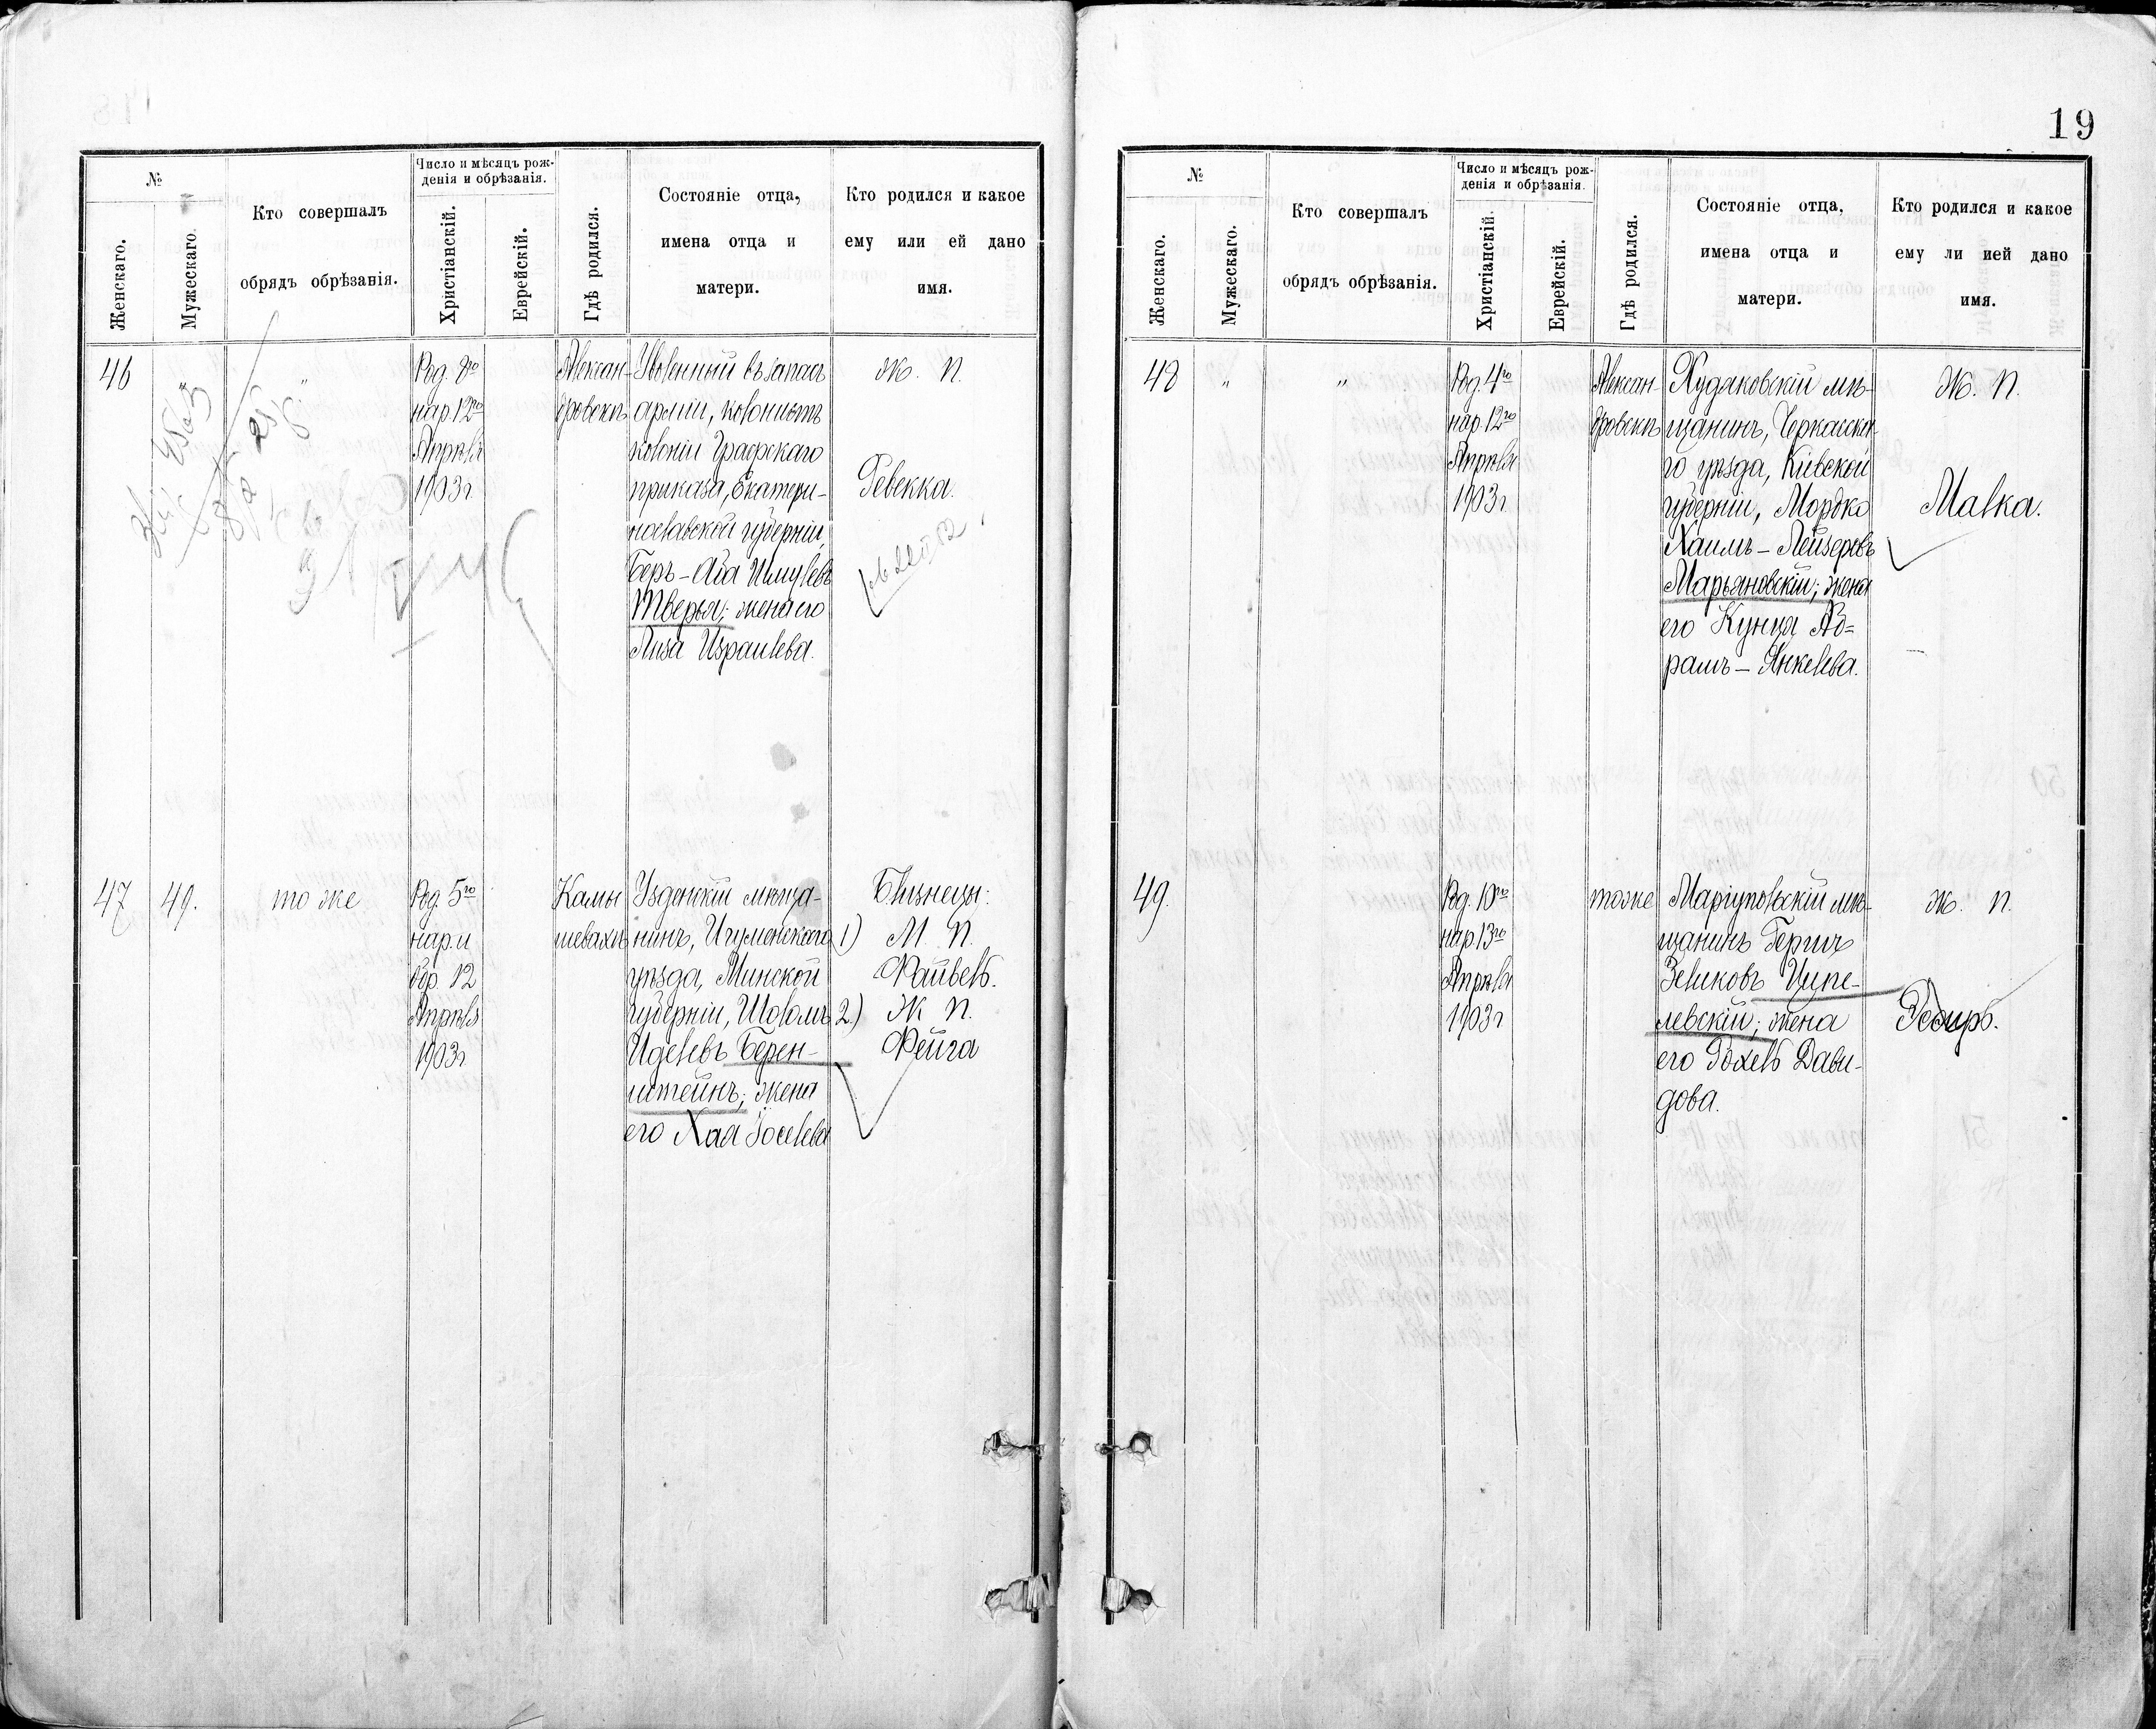 19
№
Женскаго.
Мужескаго.
Кто совершалъ
обрядъ обрѣзанія.
Число и мѣсяцъ рож-
денія и обрѣзанія.
Христіанскій.
Еврейскій.
Гдѣ родился.
Состояніе отца,
имена отца и
матери.
Кто родился и какое
ему или ей дано
имя.
46
"
Род. 8го
нар. 12го
Апрѣля
1903 г.
Алексан-
дровскъ
Уволенный въ запасъ
арміи, колонистъ
колоніи Графскаго
приказа, Екатери-
нославской губерніи,
Беръ-Аба Шмулевъ
Тверья; жена его
Лиза Израилева.
Ж. П.
Ревекка.
47
49.
то же
Род. 5го
нар. и
обр. 12
Апрѣля
1903 г.
Камы
шевахѣ
Узденскій мѣща-
нинъ, Игуменскаго
уѣзда, Минской
губерніи, Шоломъ
Иделевъ Берен-
штейнъ; жена
его Хая Іоселева
Близнецы:
1) М. П.
Файвель.
2.) Ж. П.
Фейга
№
Женскаго.
Мужескаго.
Кто совершалъ
обрядъ обрѣзанія.
Число и мѣсяцъ рож-
денія и обрѣзанія.
Христіанскій.
Еврейскій.
Гдѣ родился.
Состояніе отца,
имена отца и
матери.
Кто родился и какое
ему ли ией дано
имя.
48
"
"
Род. 4го
нар. 12го
Апрѣля
1903 г.
Алексан-
дровскъ
Худяковскій мѣ-
щанинъ, Черкасска-
го уѣзда, Кіевской
губерніи, Мордко
Хаимъ-Лейзеровъ
Марьяновскій; жена
его Куня Аб=
рамъ-Янкелева.
Ж. П.
Малка.
49.
Род. 10го
нар. 13го
Апрѣля
1903 г
тоже
Маріупольскій мѣ-
щанинъ Гершъ
Зеликовъ
левскій; жена
его Рохель Дави-
дова.
Ж. П.